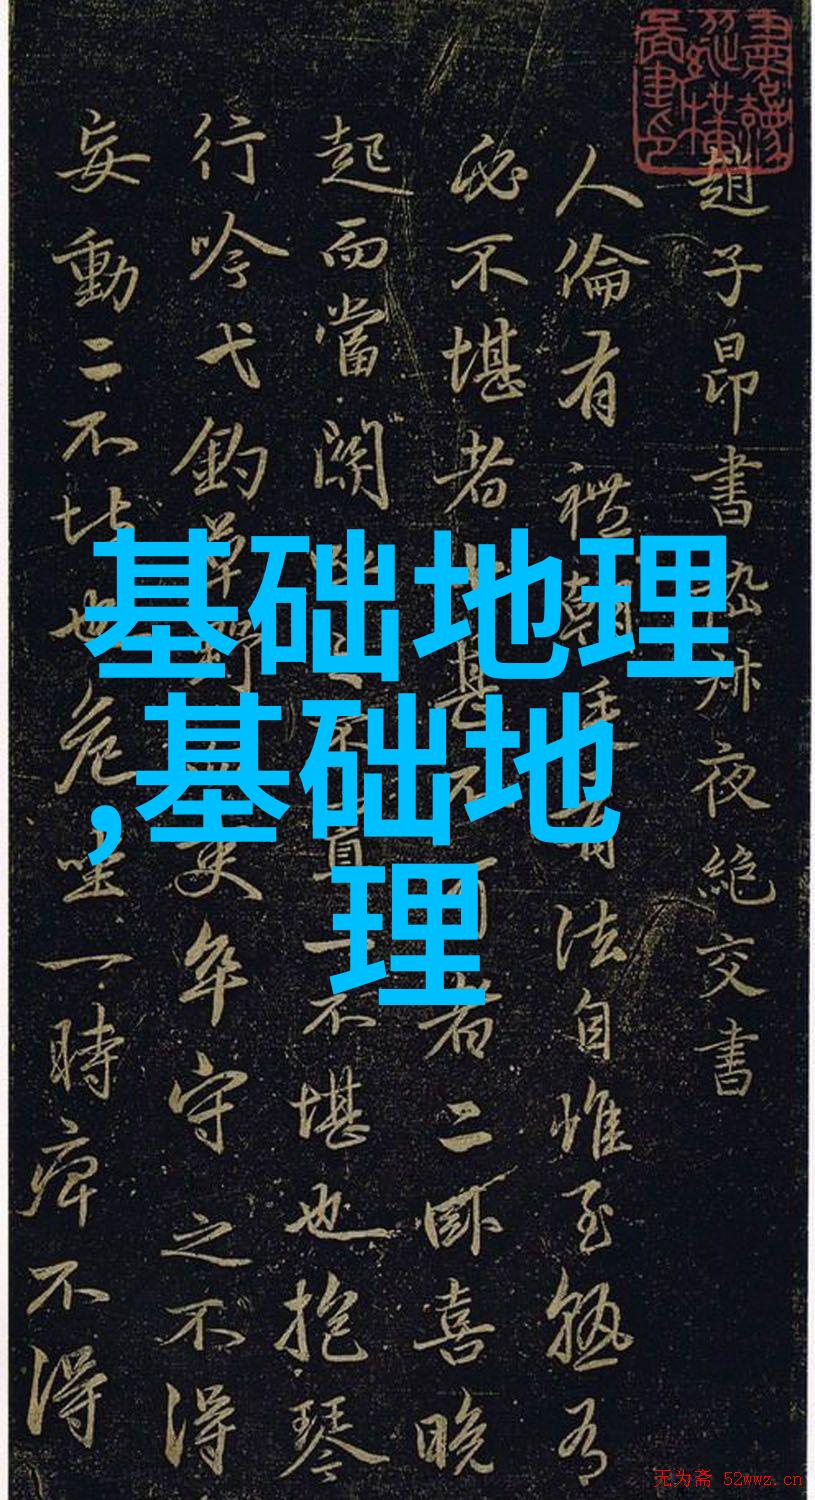 趙子昂書嵇叔夜絕交書
人倫有禮朝廷有法自惟至熟有
必不堪者七甚不可者二臥喜晚
起而當關呼之不置一不堪也抱琴
行吟弋釣草野而吏卒守之不得
妄動二不堪也危坐一時痺不得
基础地理
,基础地
理
无为斋 52wwz.cn